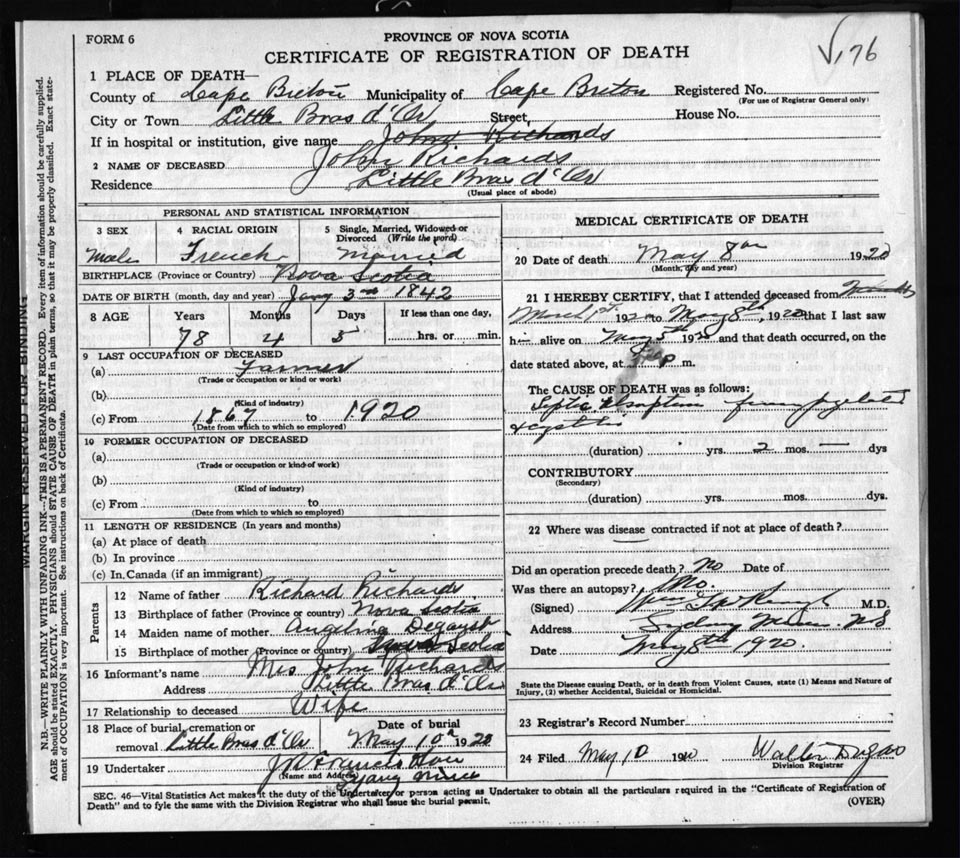 FORM 6
PROVINCE OF NOVA SCOTIA
CERTIFICATE OF REGISTRATION OF DEATH
V, 176
1 PLACE OF DEATH—
County of Cape Breton Municipality of Cape Breton Registered No.
(For use of Registrar General only)
City or Town Little Bras d'Or Street, House No.
If in hospital or institution, give name John Richards
2 NAME OF DECEASED John Richards
Residence Little Bras d'Or
(Usual place of abode)
PERSONAL AND STATISTICAL INFORMATION
3 SEX 4 RACIAL ORIGIN 5 Single, Married, Widowed or Divorced (Write the word)
Male French Married
BIRTHPLACE (Province or Country) Nova Scotia
DATE OF BIRTH (month, day and year) Jany 3rd 1842
8 AGE Years Months Days If less than one day,
78 4 5 hrs. or min.
9 LAST OCCUPATION OF DECEASED
(a) Farmer
(Trade or occupation or kind or work)
(b)
(Kind of industry)
(c) From 1867 to 1920
(Date from which to which so employed)
10 FORMER OCCUPATION OF DECEASED
(a)
(Trade or occupation or kind of work)
(b)
(Kind of industry)
(c) From to
(Date from which to which so employed)
11 LENGTH OF RESIDENCE (In years and months)
(a) At place of death
(b) In province
(c) In Canada (if an immigrant)
Parents
12 Name of father Richard Richards
13 Birthplace of father (Province or country) Nova Scotia
14 Maiden name of mother Angeline
15 Birthplace of mother (Province or country) Scotia
16 Informant's name Mrs John Richards
Address Little Bras d'Or
17 Relationship to deceased Wife
18 Place of burial, cremation or removal Little Bras d'Or Date of burial May 10th 1920
19 Undertaker Francis
(Name and Address) Mines
MEDICAL CERTIFICATE OF DEATH
20 Date of death May 8th 1920
(Month, day and year)
21 I HEREBY CERTIFY, that I attended deceased from
March 1st 1920 to May 8th, 1920 that I last saw
him alive on May 5th 1920 and that death occurred, on the
date stated above, at p m.
The CAUSE OF DEATH was as follows:
Septic Absorption from
& cystitis
(duration) yrs. 2 mos. dys
CONTRIBUTORY
(Secondary)
(duration) yrs. mos. dys.
22 Where was disease contracted if not at place of death?
Did an operation precede death? No Date of
Was there an autopsy? No.
(Signed) Wm M.D.
Address Sydney Mines NS
Date May 8th 1920.
State the Disease causing Death, or in death from Violent Causes, state (1) Means and Nature of Injury, (2) whether Accidental, Suicidal or Homicidal.
23 Registrar's Record Number
24 Filed May 10 1920 Walter
Division Registrar
SEC. 46—Vital Statistics Act makes it the duty of the Undertaker or person acting as Undertaker to obtain all the particulars required in the "Certificate of Registration of
Death" and to fyle the same with the Division Registrar who shall issue the burial permit.
(OVER)
MARGIN RESERVED FOR BINDING
N.B.—WRITE PLAINLY WITH UNFADING INK—THIS IS A PERMANENT RECORD. Every item of information should be carefully supplied.
AGE should be stated EXACTLY. PHYSICIANS should STATE CAUSE OF DEATH in plain terms, so that it may be properly classified. Exact state-
ment of OCCUPATION is very important. See instructions on back of Certificate.